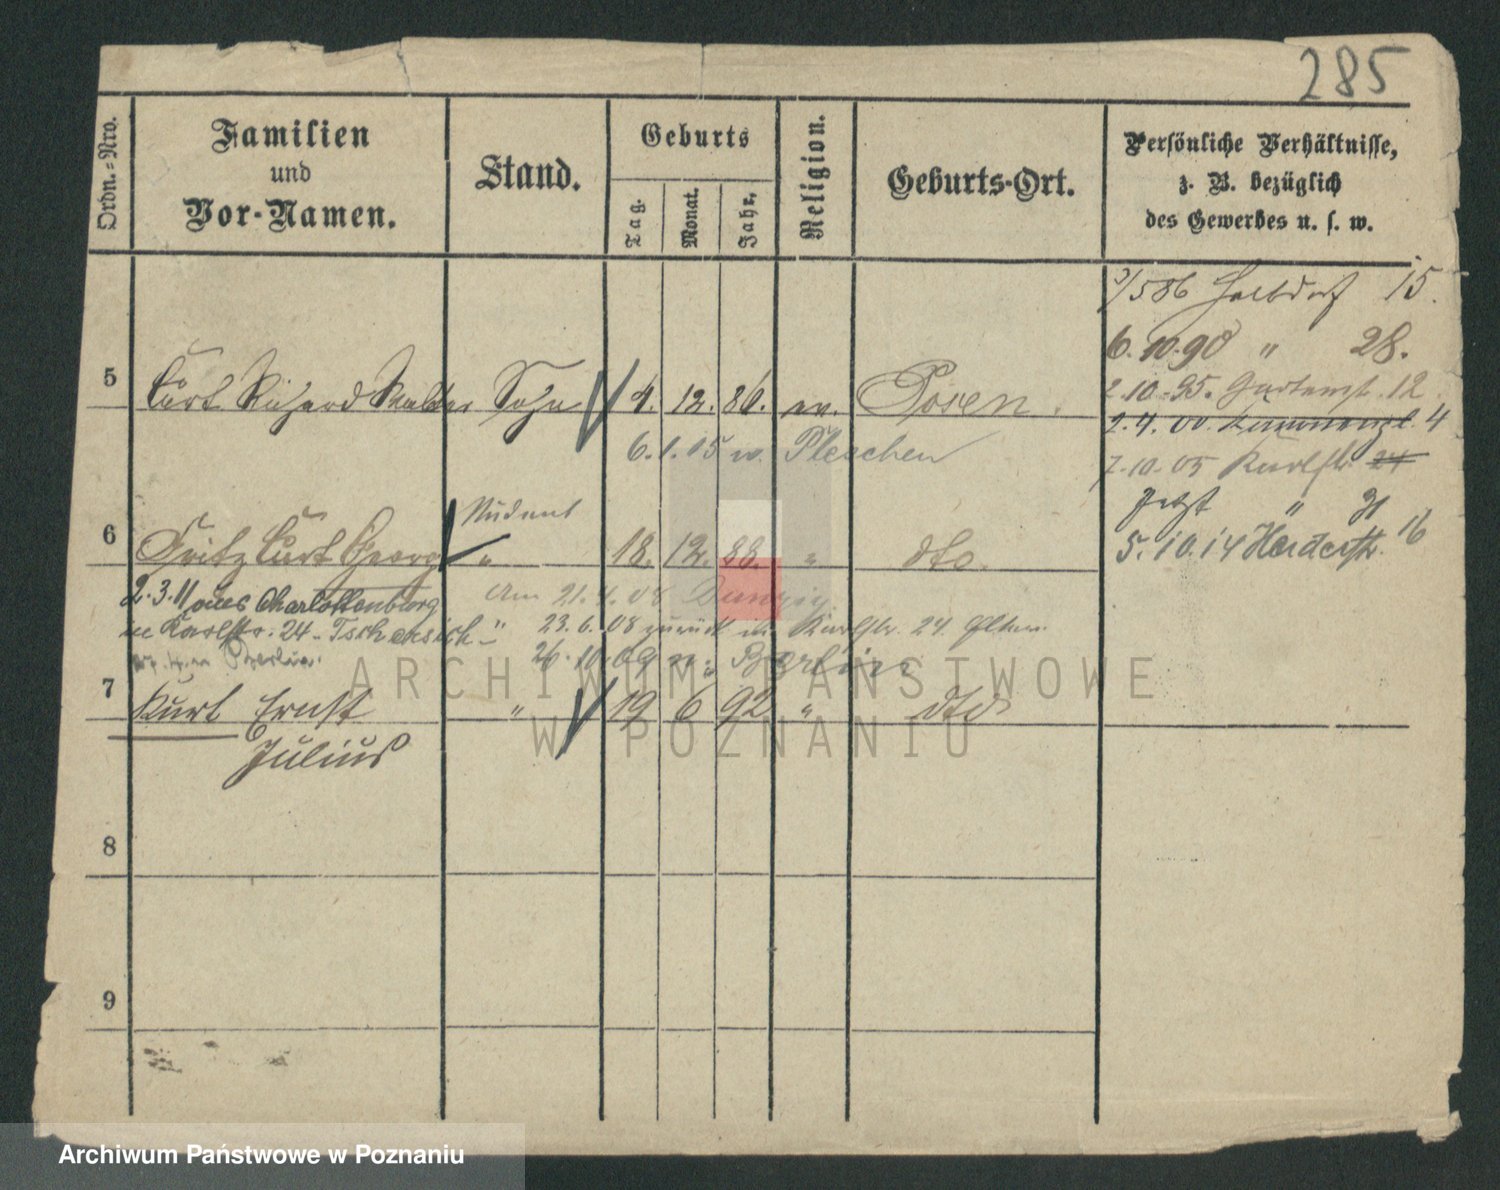 285
Ordn.=Nro.
Familien
und
Vor-Namen.
Stand.
Geburts
Tag.
Monat.
Jahr.
Religion.
Geburts-Ort.
Persönliche Verhältnisse,
z. B. bezüglich
des Gewerbes u. s. w.
5
Curt Richard Walter Sohn 4. 12. 86. ev. Posen.
6.1.05 n. Pleschen
/586 Halbdorf 15.
6.10.90 " 28.
2.10.95. Gartenstr. 12
2.4.00. 4
7.10.05 Karlstr. 24
Jetzt "
5.10.14 Herderstr. 16
6
Student
Fritz Curt Georg " 18. 12. 88. " dto.
2.3.11 aus Charlottenburg
in Karlstr. 24
Am 21.4.08 Danzig
23.6.08 zurück in Karlstr. 24. Eltern.
26.10.09 n. Berlin
7
Kurt Ernst " 19 6 92 " dto
Julius
8
9
ARCHIWUM PAŃSTWOWE
W POZNANIU
Archiwum Państwowe w Poznaniu